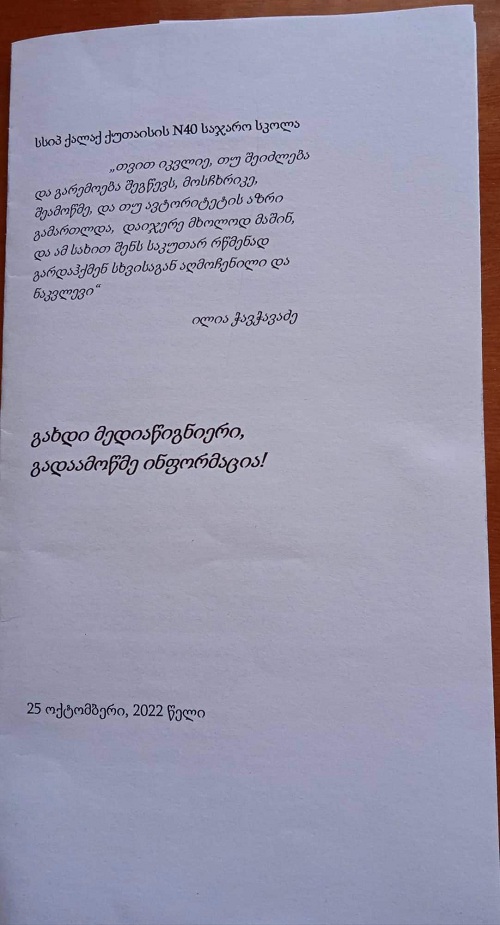 სსიპ ქალაქ ქუთაისის N40 საჯარო სკოლა
„თვით იკვლიე, თუ შეიძლება
და გარემოება შეგწევს, მოსჩხრიკე,
შეამოწმე, და თუ ავტორიტეტის აზრი
გამართლდა, დაიჯერე მხოლოდ მაშინ,
და ამ სახით შენს საკუთარ რწმენად
გარდაჰქმენ სხვისაგან აღმოჩენილი და
ნაკვლევი“
ილია ჭავჭავაძე
გახდი მედიაწიგნიერი,
გადაამოწმე ინფორმაცია!
25 ოქტომბერი, 2022 წელი